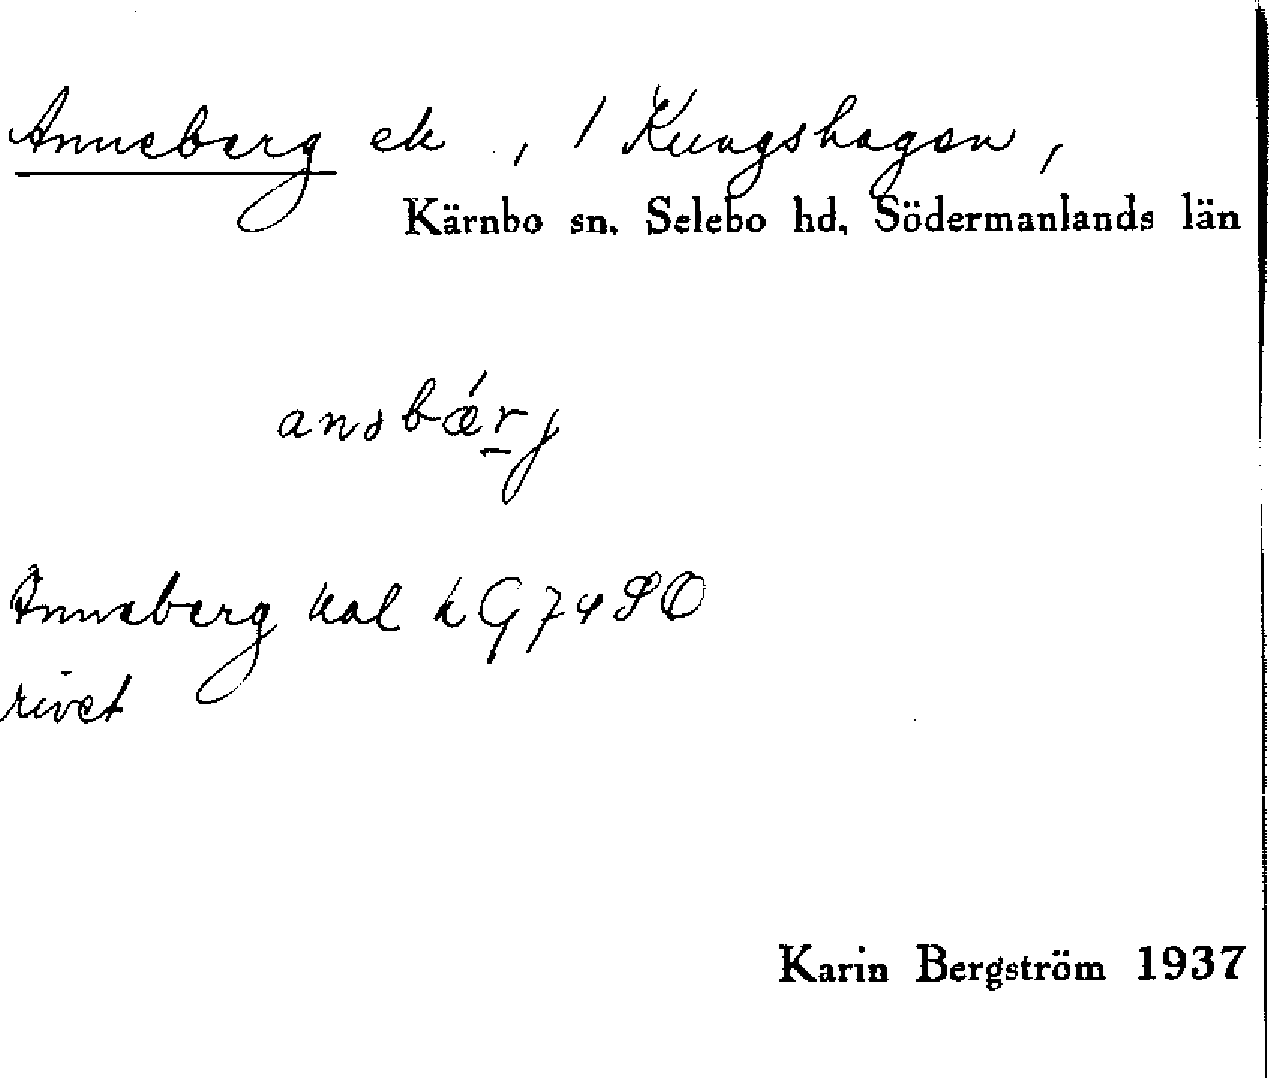 Anneberg ek , / Kungshagen ,
Kärnbo sn. Selebo hd. Södermanlands län
anəbǽr̲j
Anneberg hal k G74SO
rivet
Karin Bergström 1937